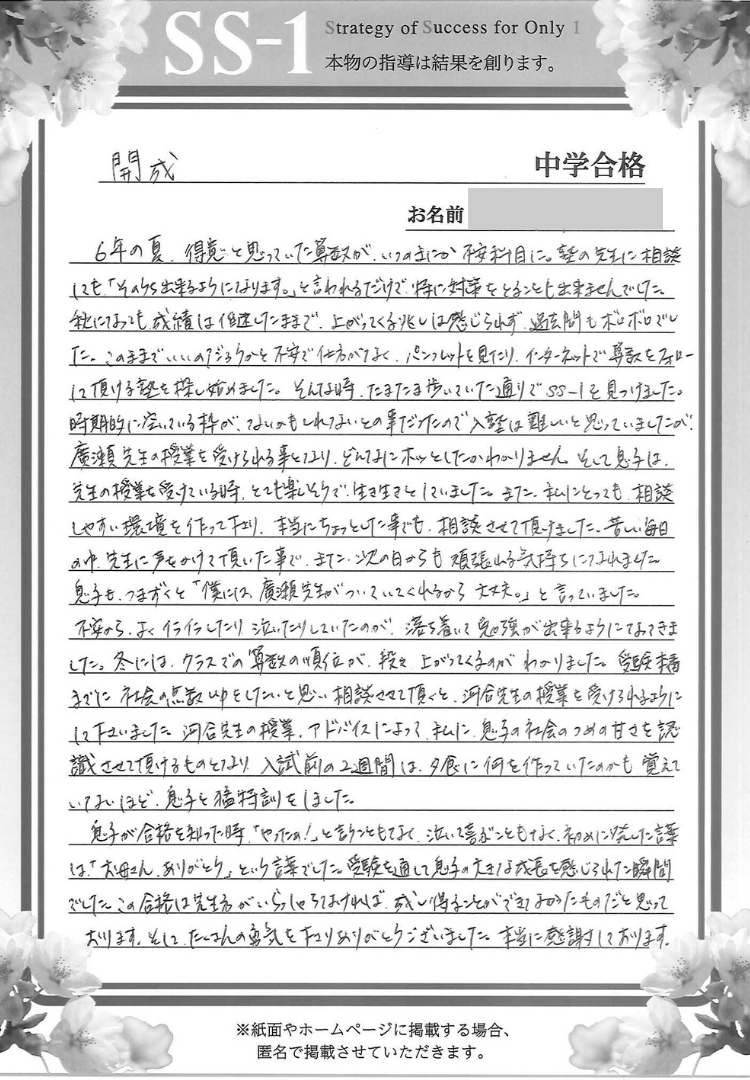 SS-1
Strategy of Success for Only 1
本物の指導は結果を創ります。
開成 中学合格
お名前
6年の夏、得意と思っていた算数が、いつのまにか不安科目に。塾の先生に相談
しても「そのうち出来るようになります。」と言われるだけで、特に対策をとることも出来ませんでした。
秋になっても成績は低迷したままで、上がってくる兆しは感じられず、過去問もボロボロでし
た。このままでいいのだろうかと不安で仕方がなく、パンフレットを見たり、インターネットで算数をフォロー
して頂ける塾を探し始めました。そんな時、たまたま歩いていた通りでSS-1を見つけました。
時期的に空いている枠が、ないかもしれないとの事だったので入塾は難しいと思っていましたが、
廣瀬先生の授業を受けられる事となり、どんなにホッとしたかわかりません。そして息子は、
先生の授業を受けている時、とても楽しそうで、生き生きとしていました。また、私にとっても、相談
しやすい環境を作って下さり、本当にちょっとした事でも、相談させて頂けました。苦しい毎日
の中、先生に声をかけて頂いた事で、また、次の日からも頑張れる気持ちになれました。
息子も、つまずくと「僕には、廣瀬先生がついていてくれるから大丈夫。」と言っていました。
不安から、よくイライラしたり泣いたりしていたのが、落ち着いて勉強が出来るようになってきま
した。冬には、クラスでの算数の順位が、段々上がってくるのがわかりました。受験本番
までに社会の点数upをしたいと思い相談させて頂くと、河合先生の授業を受けられるように
して下さいました。河合先生の授業、アドバイスによって、私に、息子の社会のつめの甘さを認
識させて頂けるものとなり、入試前の2週間は、夕食に何を作っていたのかも、覚えて
いないほど、息子と猛特訓をしました。
息子が合格を知った時、「やったぁ!」と言うこともなく、泣いて喜ぶこともなく、初めに発した言葉
は、「お母さん、ありがとう」という言葉でした。受験を通して息子の大きな成長を感じられた瞬間
でした。この合格は先生方がいらっしゃらなければ、成し得ることができなかったものだと思って
おります。そして、たくさんの勇気を下さりありがとうございました。本当に感謝しております。
※紙面やホームページに掲載する場合、
匿名で掲載させていただきます。